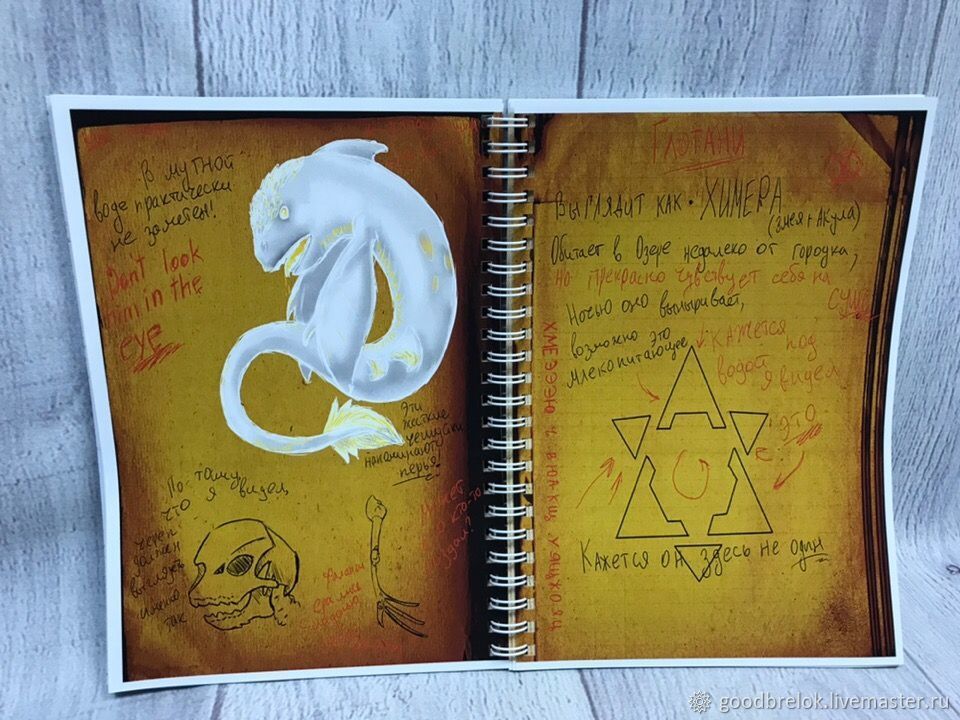 В мутной
воде практически
не заметен!
Don't look
him in the
eye
Эти
жёсткие
чешуйки
напоминают
перья!
По тому,
что я видел,
череп
должен
выглядеть
именно
так
Глотани
Выглядит как ХИМЕРА
(змея + Акула)
Обитает в Озере недалеко от городка,
но прекрасно чувствует себя на
суше
Ночью оно выныривает,
возможно это
млекопитающее
кажется
под
водой
я видел
это
Кажется он здесь не один
goodbrelok.livemaster.ru